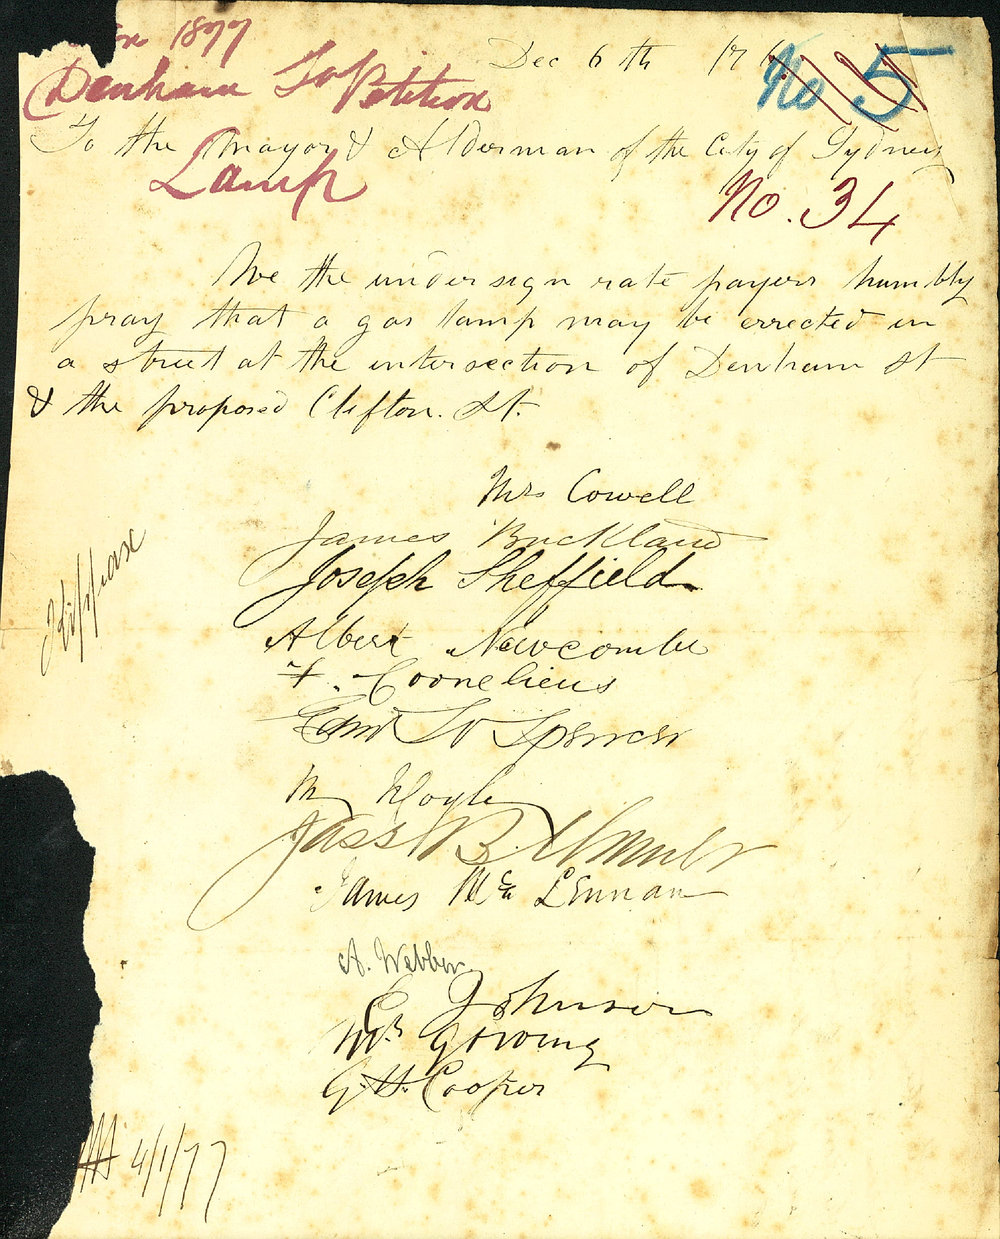 1877
Dec 6th 176
No 5
Denham St Petition
To the Mayor & Alderman of the City of Sydney
Lamp
No. 34
We the undersign rate payers humbly
pray that a gas lamp may be errected in
a street at the intersection of Denham St
& the proposed Clifton. St.
Mrs Cowell
James Buckland
Joseph Sheffield
Hippax
Albert Newcombe
F. Coornelieus
Spencer
M Hoyle
Jass B
James Mc Lennan
A. Webber
E Johnson
Mrs Gowing
G. H. Cooper
4/1/77